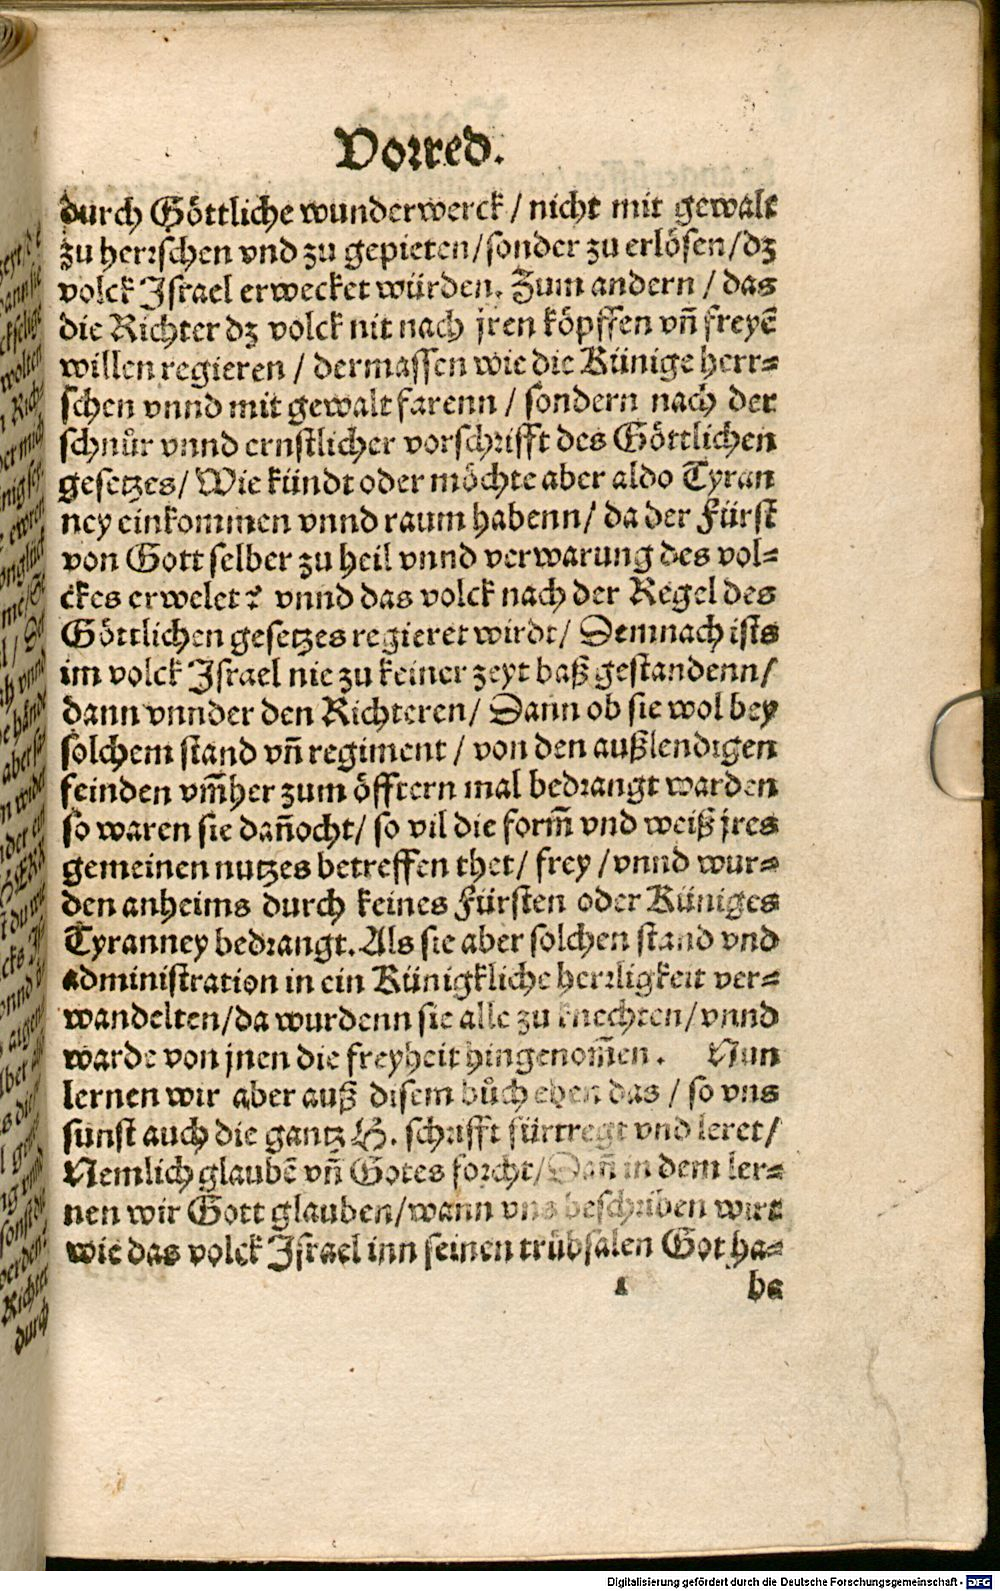 Vorred.
durch Göttliche wunderwerck / nicht mit gewalt
zu herrschen vnd zu gepieten/sonder zu erlösen/dz
volck Israel erwecket würden. Zum andern / das
die Richter dz volck nit nach jren köpffen vñ freyẽ
willen regieren / dermassen wie die Künige herr-
schen vnnd mit gewalt farenn / sondern nach der
schnůr vnnd ernstlicher vorschrifft des Göttlichen
gesetzes/ Wie kündt oder möchte aber aldo Tyran
ney einkommen vnnd raum habenn/ da der Fürst
von Gott selber zu heil vnnd verwarung des vol-
ckes erwelet? vnnd das volck nach der Regel des
Göttlichen gesetzes regieret wirdt/ Demnach ists
im volck Israel nie zu keiner zeyt baß gestandenn/
dann vnnder den Richteren/ Dann ob sie wol bey
solchem stand vñ regiment / von den außlendigen
feinden vm̃her zum öfftern mal bedrangt warden
so waren sie dañocht/ so vil die form̃ vnd weiß jres
gemeinen nutzes betreffen thet/ frey /vnnd wur-
den anheims durch keines Fürsten oder Küniges
Tyranney bedrangt. Als sie aber solchen stand vnd
administration in ein Künigkliche herrligkeit ver-
wandelten/da wurdenn sie alle zu knechten/vnnd
warde von jnen die freyheit hingenom̃en. Nun
lernen wir aber auß disem bůch eben das / so vns
sunst auch die gantz H. schrifft fürtregt vnd leret/
Nemlich glaubẽ vñ Gotes forcht/ Dañ in dem ler-
nen wir Gott glauben/wann vns beschriben wirt
wie das volck Israel inn seinen trübsalen Got ha-
be
Digitalisierung gefördert durch die Deutsche Forschungsgemeinschaft - DFG